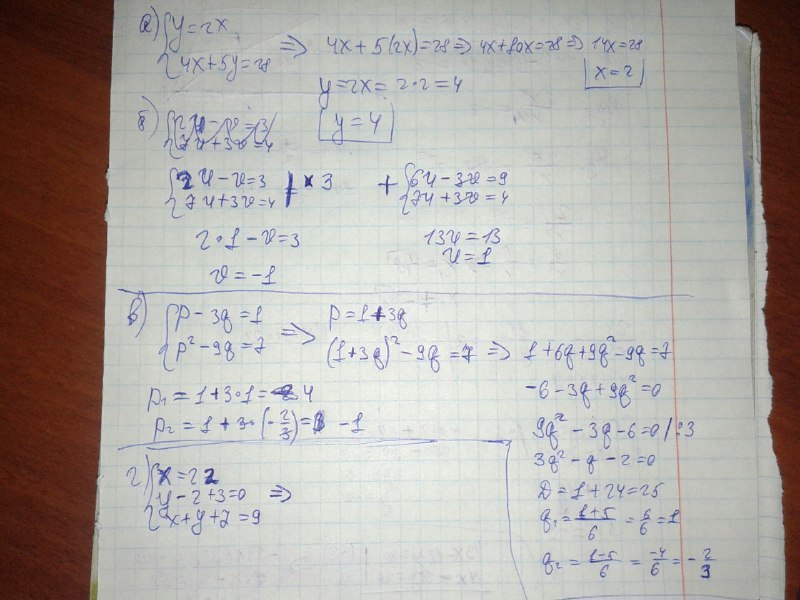 а) { y=2x
{ 4x+5y=28 => 4x+5(2x)=28 => 4x+10x=28 => 14x=28
y=2x=2·2=4
x=2
y=4
б) { 2u-v=3
{ 7u+3v=4
{ 2u-v=3 | × 3
{ 7u+3v=4
+ { 6u-3v=9
{ 7u+3v=4
13u=13
u=1
2·1-v=3
v=-1
в) { p-3q=1
{ p²-9q=7 =>
p=1+3q
(1+3q)²-9q=7 => 1+6q+9q²-9q=7
-6-3q+9q²=0
9q²-3q-6=0 /:3
3q²-q-2=0
D=1+24=25
q₁=(1+5)/6=6/6=1
q₂=(1-5)/6=-4/6=-2/3
p₁=1+3·1=4
p₂=1+3·(-2/3)=-1
г) { x=2z
{ y-z+3=0 =>
{ x+y+z=9